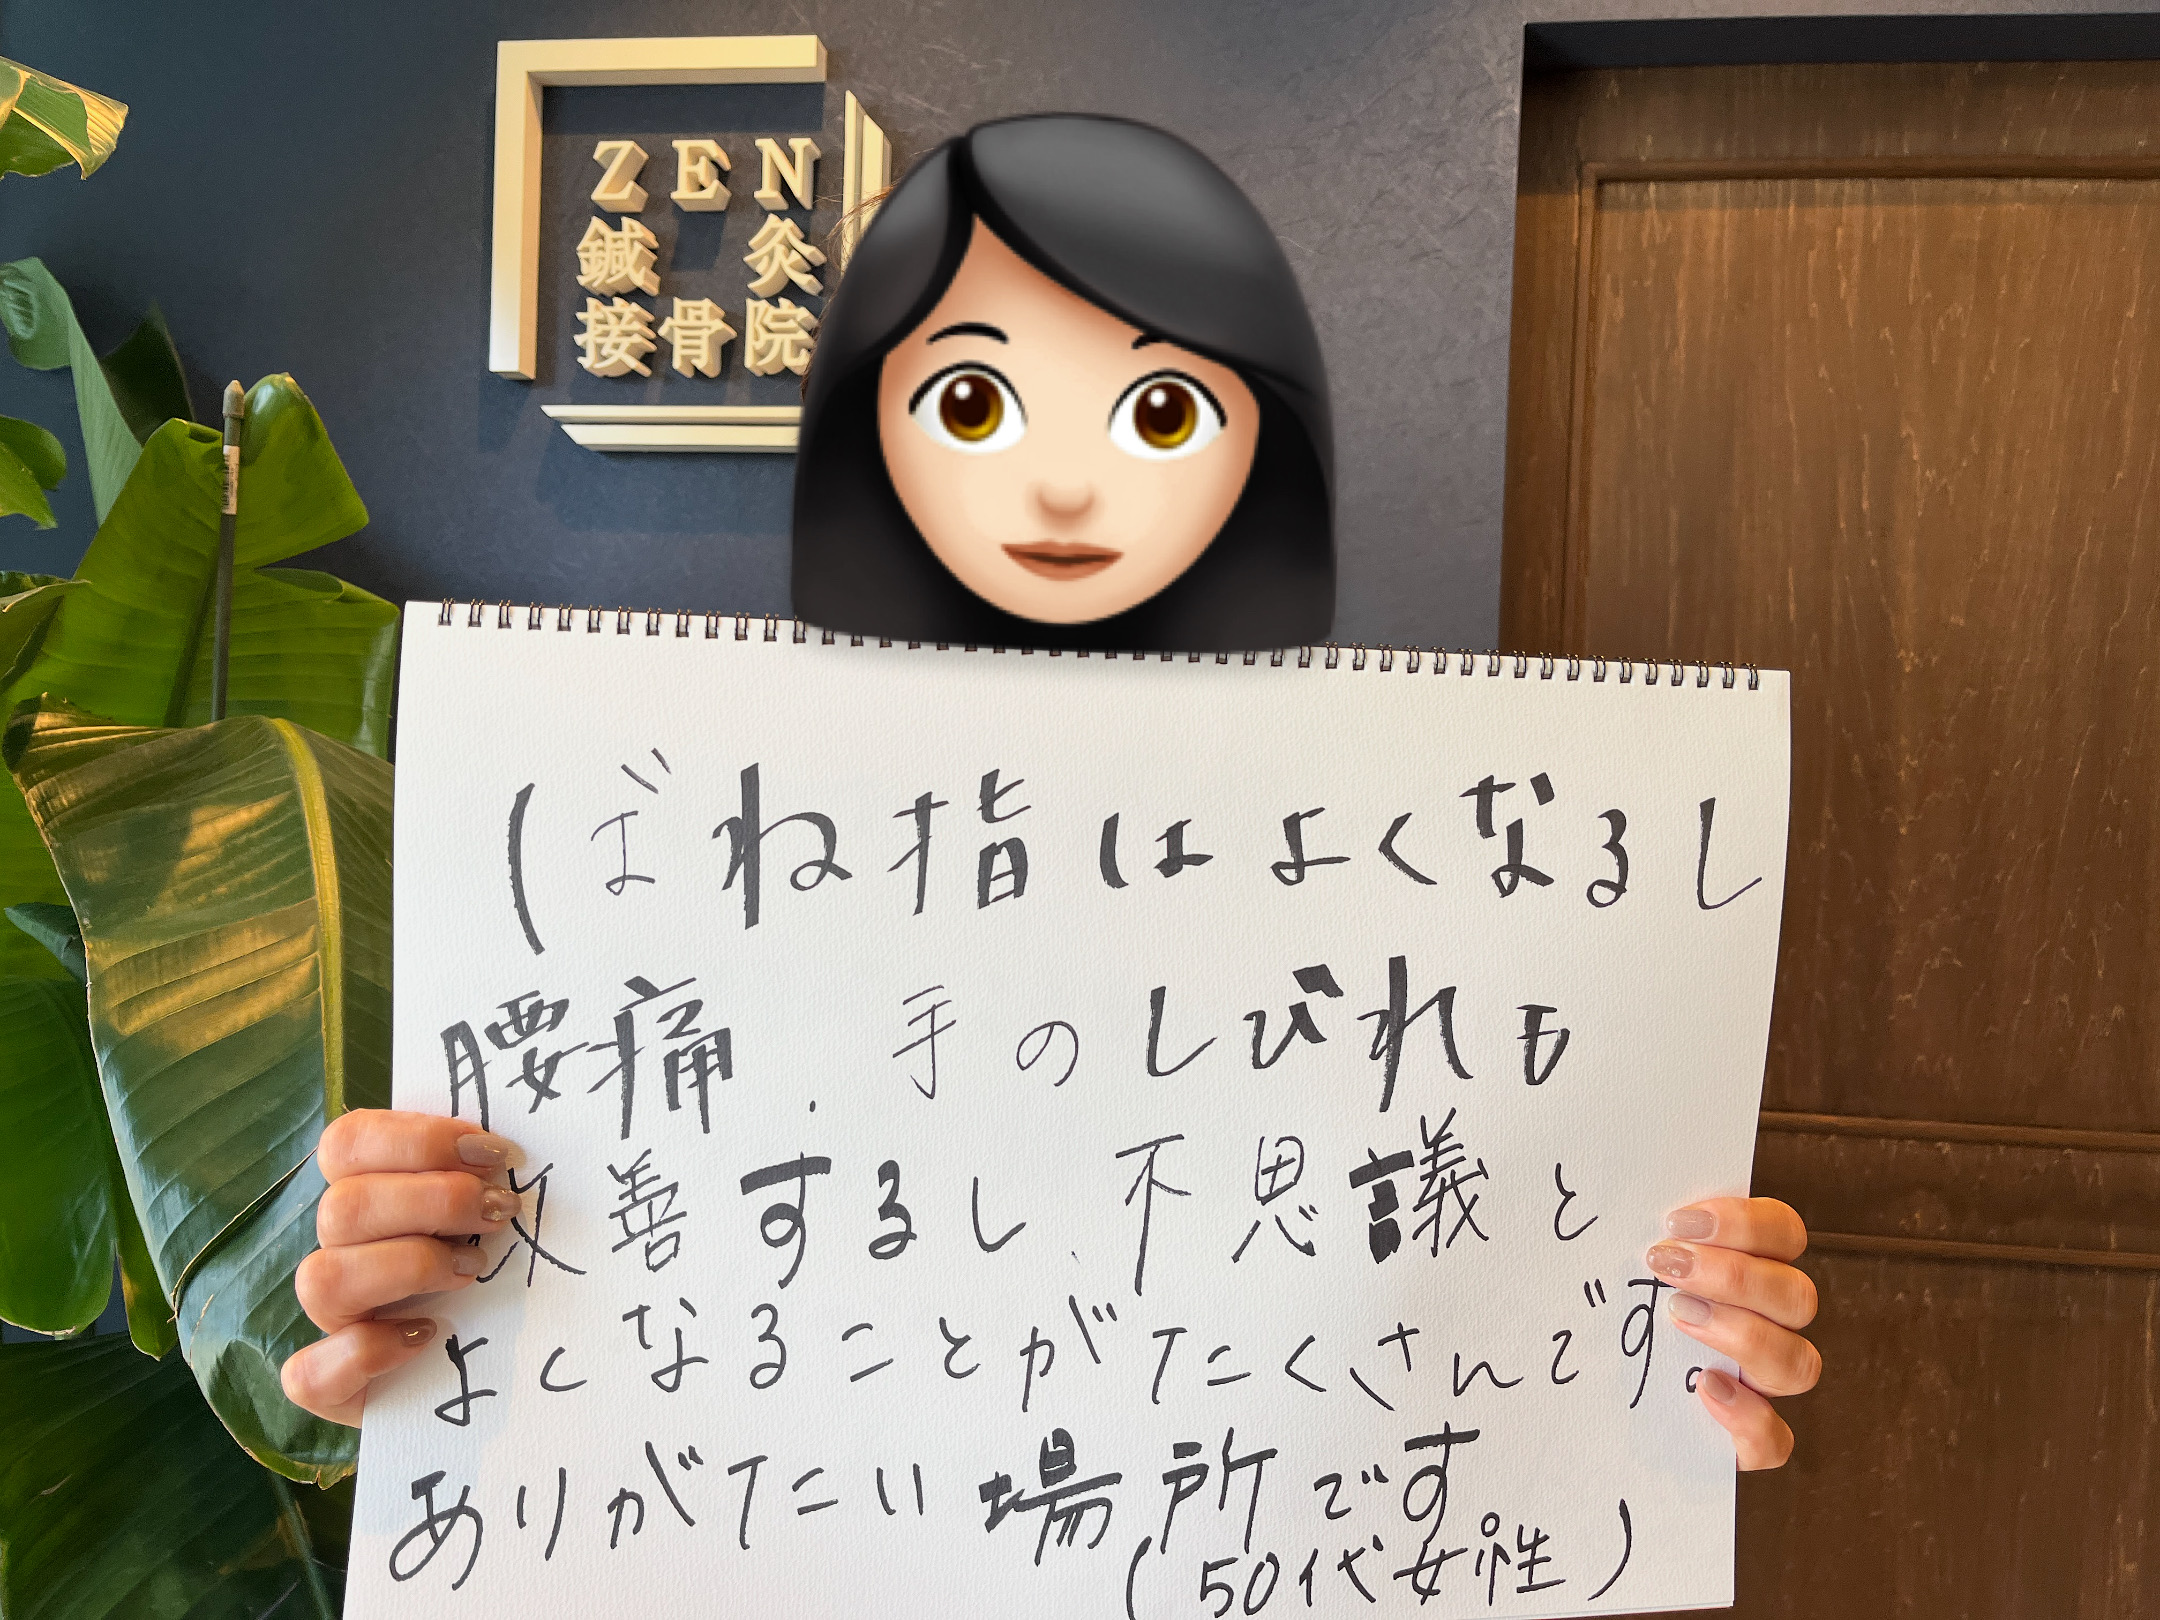 ZEN
鍼灸
接骨院
ばね指はよくなるし
腰痛、手のしびれも
改善するし、不思議と
よくなることがたくさんです。
ありがたい場所です
(50代女性)